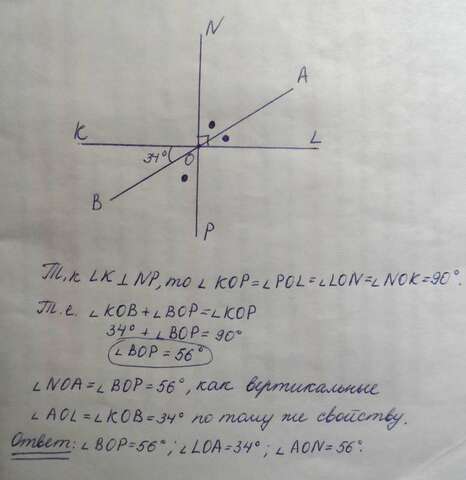 N
A
K
L
34°
O
B
P
Т.к. LK⊥NP, то ∠KOP=∠POL=∠LON=∠NOK=90°.
Т.е. ∠KOB+∠BOP=∠KOP
34°+∠BOP=90°
∠BOP=56°
∠NOA=∠BOP=56°, как вертикальные
∠AOL=∠KOB=34° по тому же свойству.
Ответ: ∠BOP=56°; ∠LOA=34°; ∠AON=56°.